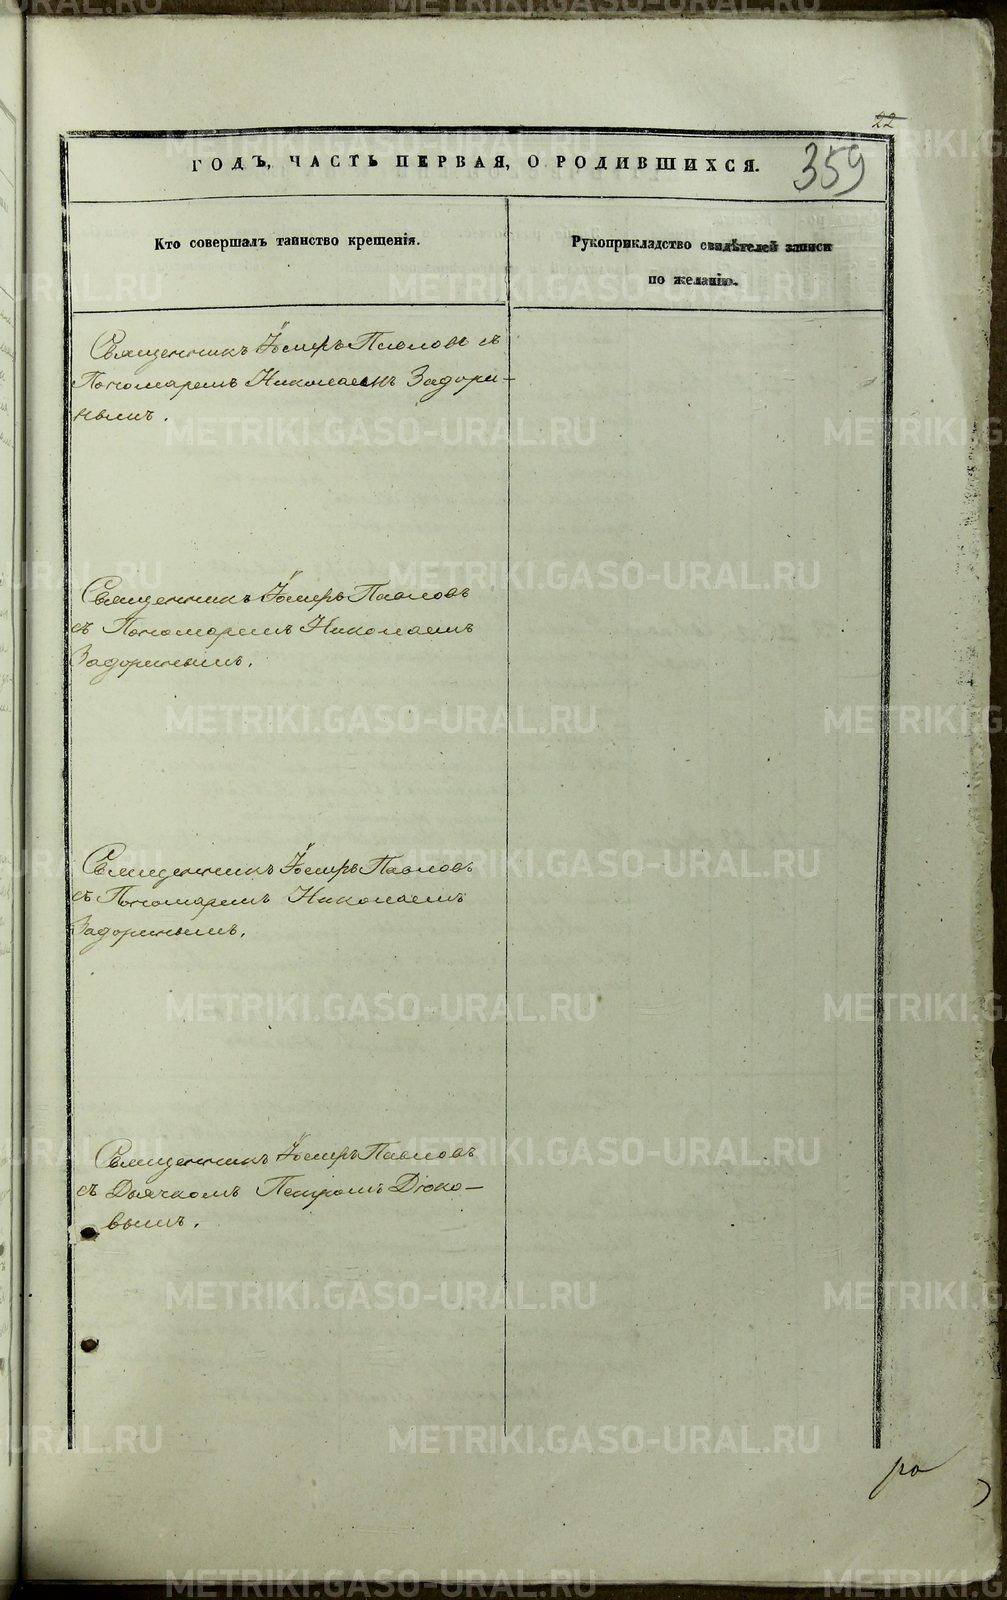 22
ГОДЪ, ЧАСТЬ ПЕРВАЯ, О РОДИВШИХСЯ.
359
Кто совершалъ таинство крещенія.
Рукоприкладство свидѣтелей записи
по желанію.
Священникъ Павловъ съ
Пономаремъ Николаемъ Задори-
нымъ.
Священникъ Павловъ
съ Пономаремъ Николаемъ
Задоринымъ.
Священникъ Павловъ
съ Пономаремъ Николаемъ
Задоринымъ.
Священникъ Павловъ
съ Дьячкомъ Петромъ Дюко-
вымъ.
METRIKI.GASO-URAL.RU